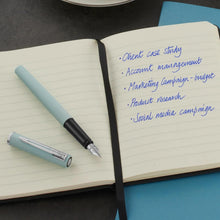 • Client case study
• Account management
• Marketing Campaign - budget
• Product research
• Social media campaign